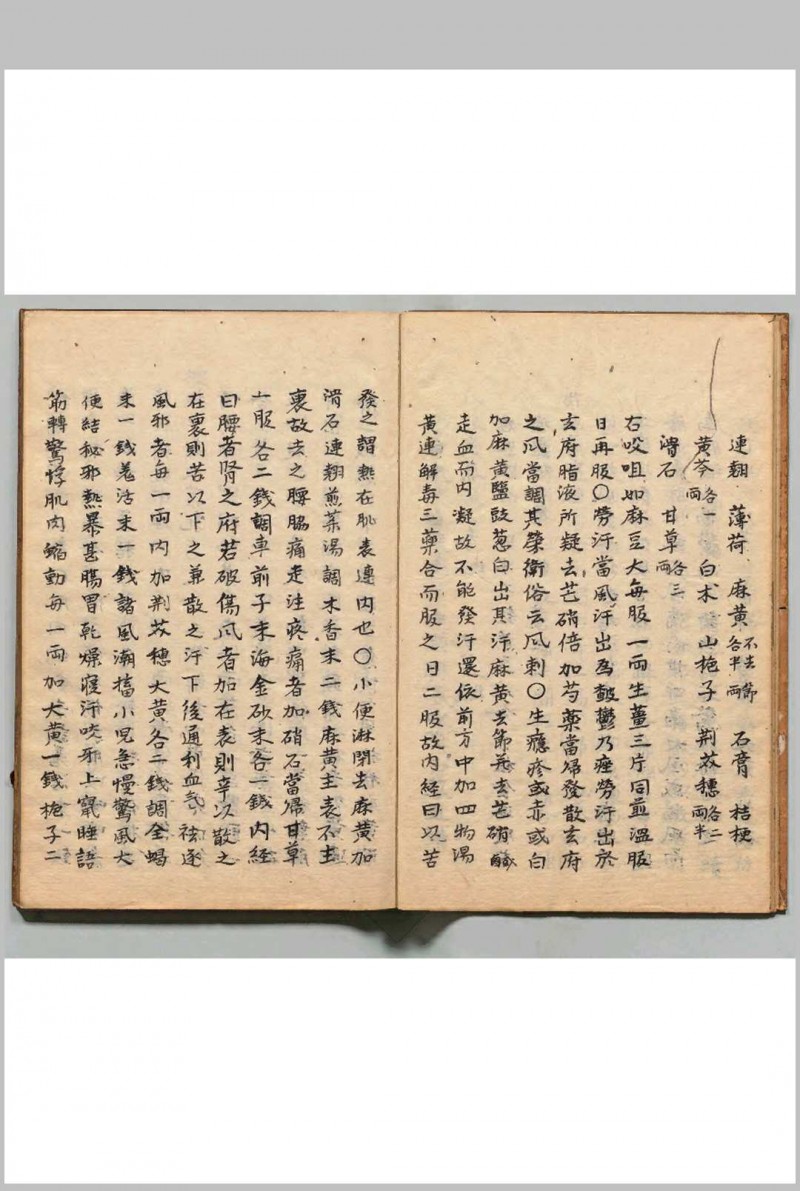 連翹 薄荷 麻黄不去節各半両 石膏 桔梗
黄芩各一両 白术 山梔子 荆芥穗各二両半
滑石 甘草各三両
右㕮咀如麻豆大每服一両生薑三片同煎温服
日再服〇勞汗當風汗出為皶鬱乃痤勞汗出於
玄府脂液所疑去芒硝倍加芍藥當帰發散玄府
之风當調其榮衛俗云风刺〇生癮疹或赤或白
加麻黄鹽豉葱白出其汗麻黄去節并去芒硝鹹
走血而内凝故不能發汗還依前方中加四物湯
黄連解毒三藥合而服之日二服故内經曰以苦
發之謂熱在肌表連内也〇小便淋閉去麻黄加
滑石連翹煎菜湯調木香末二錢麻黄主表不主
裏故去之腰脇痛走注疼痛者加硝石當帰甘草
一服各二錢調車前子末海金砂末各一錢内經
曰腰者肾之府若破傷风者加在表則辛以散之
在裏則苦以下之兼散之汗下後通利血氣祛逐
風邪者每一両内加荆芥穗大黄各二錢調全蝎
末一錢羗活末一錢諸風潮搐小児急慢驚風大
便結秘邪熱暴甚腸胃乾燥寢汗咬邪上竄睡語
筋轉驚悸肌肉縮動每一両加大黄一錢梔子二